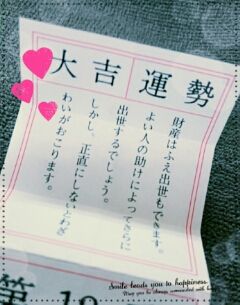 大吉 運勢
財産はふえ出世もできます。
よい人の助けによってさらに
出世するでしょう。
しかし、正直にしないとわざ
わいがおこります。
第
Smile leads you to happiness.
May you be always surrounded with